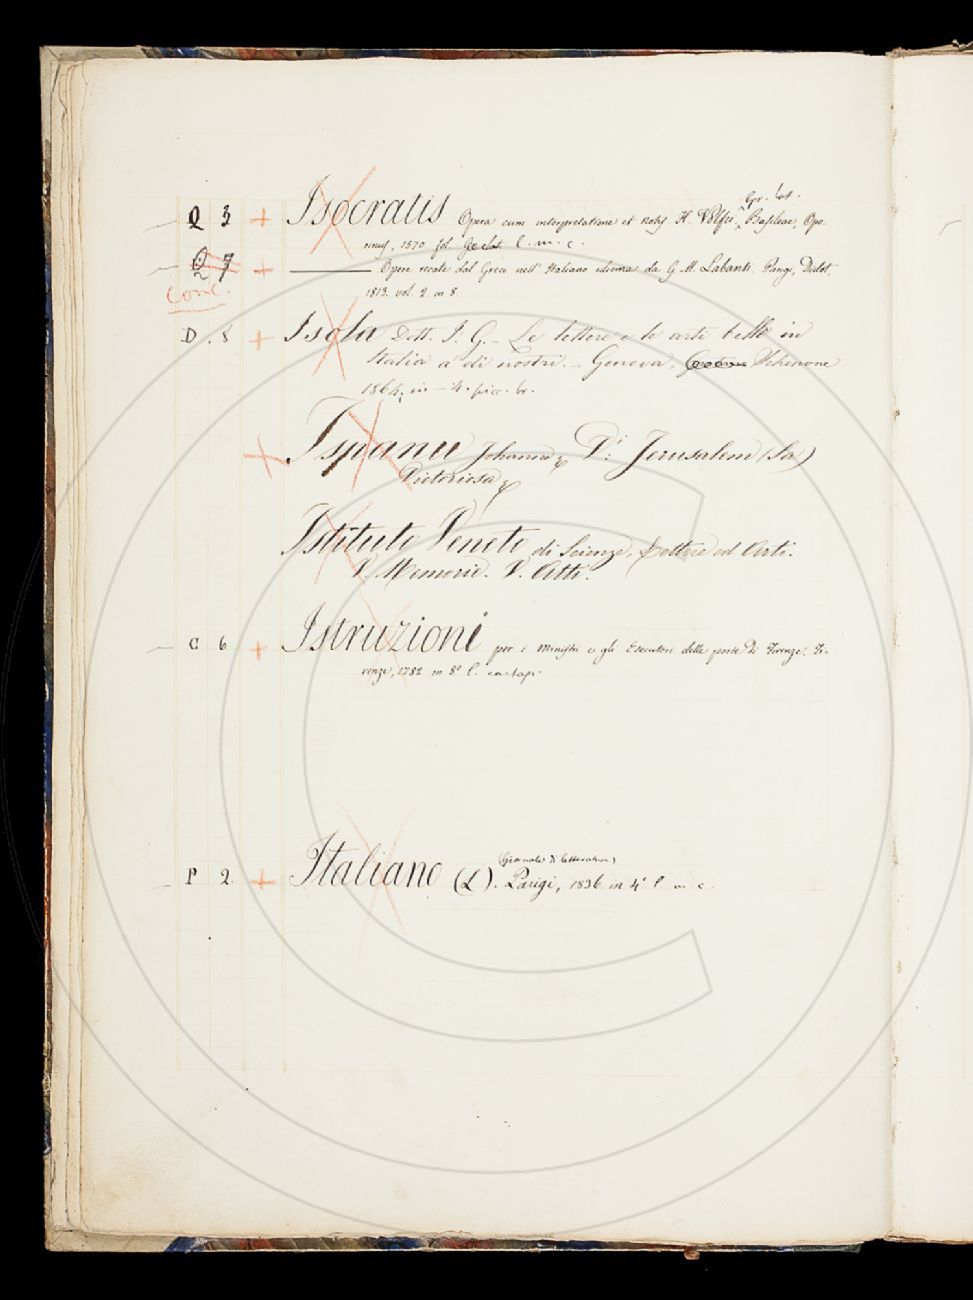 gr. lat.
Q 3 + Isocratis Opera cum interpretatione et notis H. Volfii, Basileae, Opo-
rinus, 1570 fol. l. m. c.
Q 7 + ——— Opere recate dal Greco nell' Italiano idioma da G. M. Labanti. Parigi, Didot,
conc. 1813. vol. 2. in 8.
D. 8 + Isola Dott. I. G. - Le lettere e le arti belle in
Italia a' dì nostri. - Genova, Schenone
1864, in - 4. picc. br.
+ Ispanu Johannes D.i Jerusalem (La)
Victoriosa
Istituto Veneto di Scienze, Lettere ed Arti.
V. Memorie. V. Atti.
C 6 + Istruzioni per i Ministri e gli Esecutori delle porte di Firenze. Fi-
renze, 1782 in 8° l. cartap.
(Giornale di letteratura)
P 2. + Italiano (L'). Parigi, 1836 in 4° l. m. c.